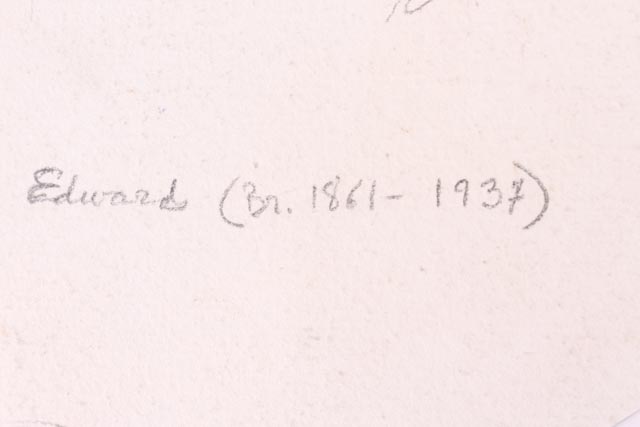 Edward (Br. 1861- 1937)